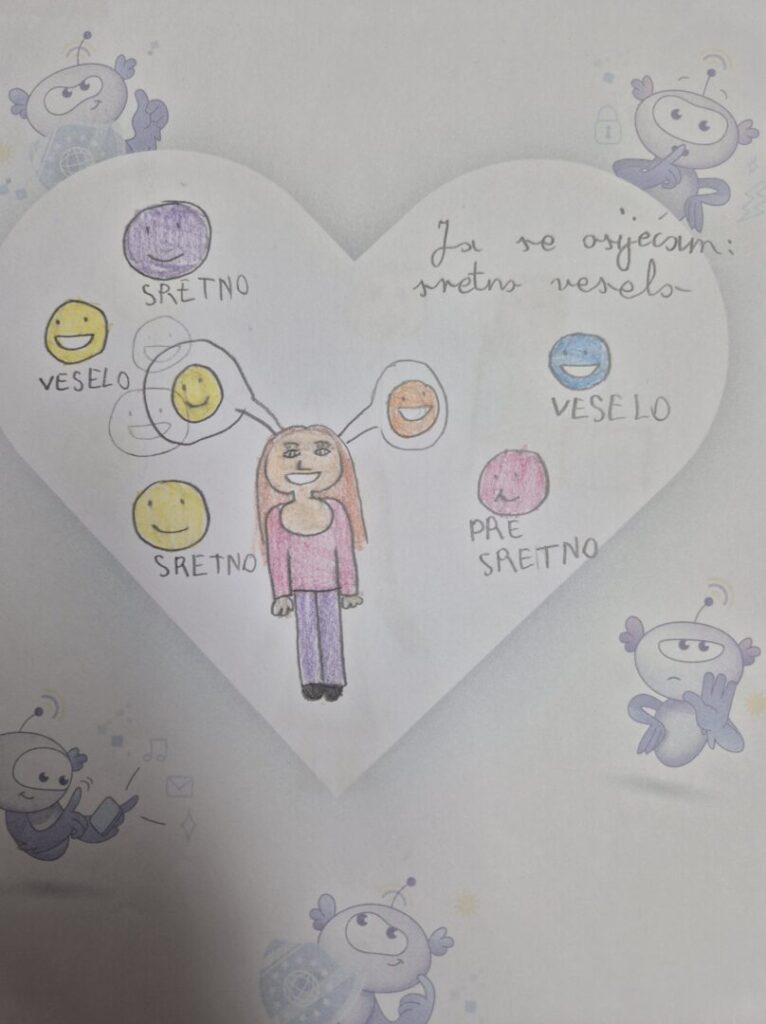 Ja se osjećam:
sretno veselo
SRETNO
VESELO
VESELO
SRETNO
PRE
SRETNO